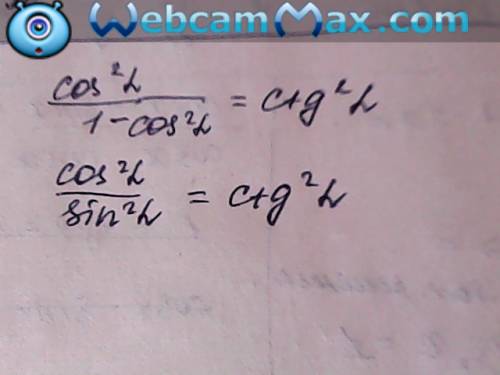 WebcamMax.com
cos²α / 1-cos²α = ctg²α
cos²α / sin²α = ctg²α